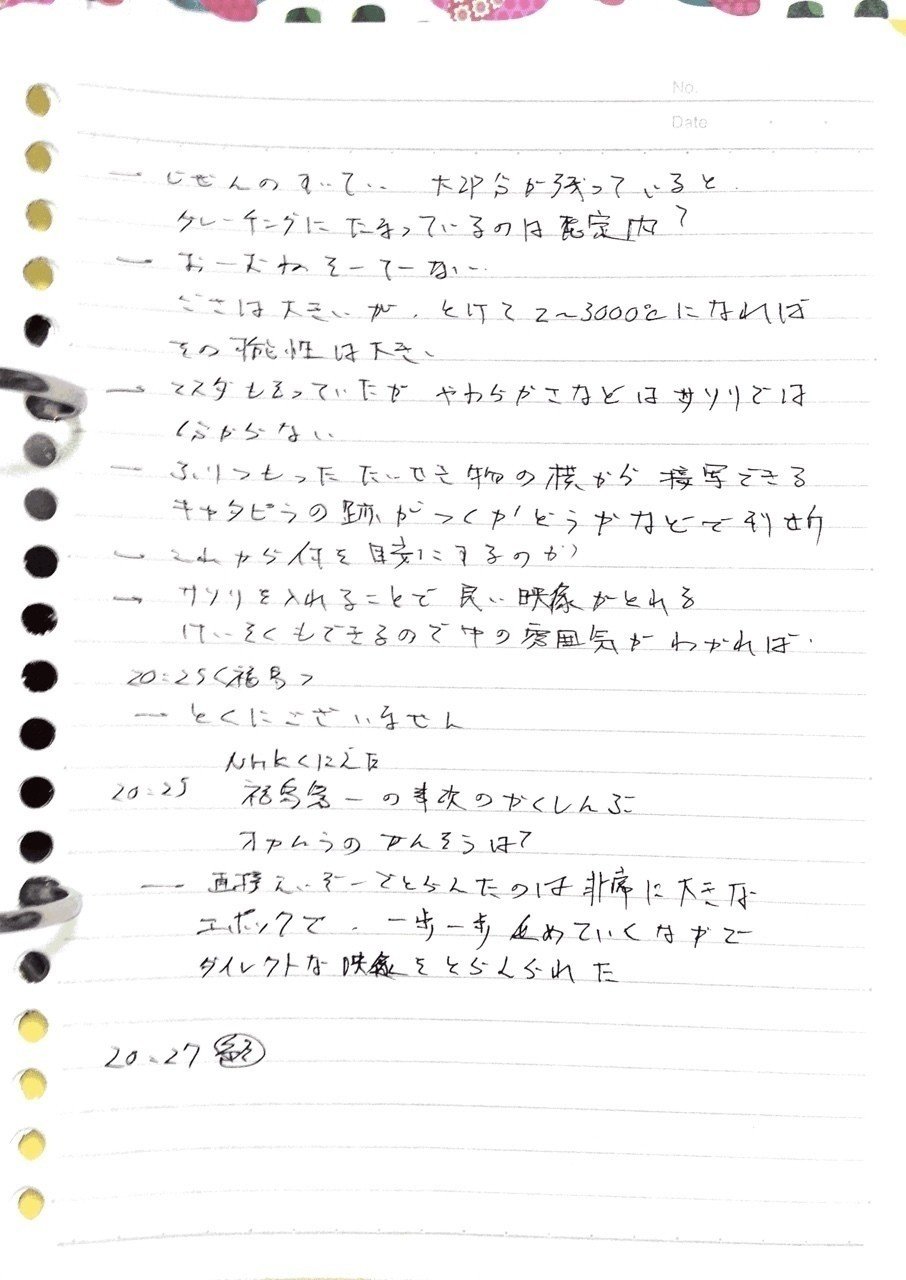 No.
Date
ー じぜんのすいてい 大部分が残っていると
グレーチングにたまっているのは想定内?
ー おーむねそーてーない
ごさは大きいが、とけて2〜3000℃になれば
その可能性は大きい
ー マスダもきっていたが やわらかさなどはサソリでは
分からない
ー ふりつもったたいせき物の横から接写できる
キャタピラの跡がつくかどうかなどで判断
ー これから何を目安にするのか?
ー サソリを入れることで良い映像がとれる
けいそくもできるので中の雰囲気がわかれば
20:25<福島>
ー とくにございません
NHK
20:25 福島第一の事故のかくしんぶ
オカムラのかんそうは?
ー 直接えいぞーでとらえたのは非常に大きな
エポックで、一歩一歩進めていくなかで
ダイレクトな映像をとらえられた
20:27 終